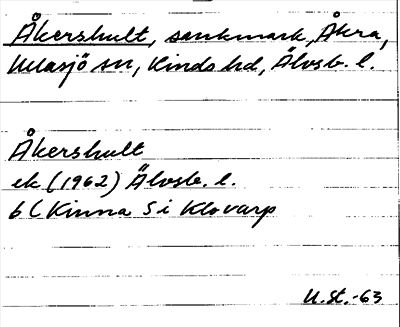 Åkershult, sankmark, Åkra,
Ullasjö sn, Kinds hd, Älvsb. l.
Åkershult
ek (1962) Älvsb. l.
6 C Kinna S i Klovarp
U.St.-63